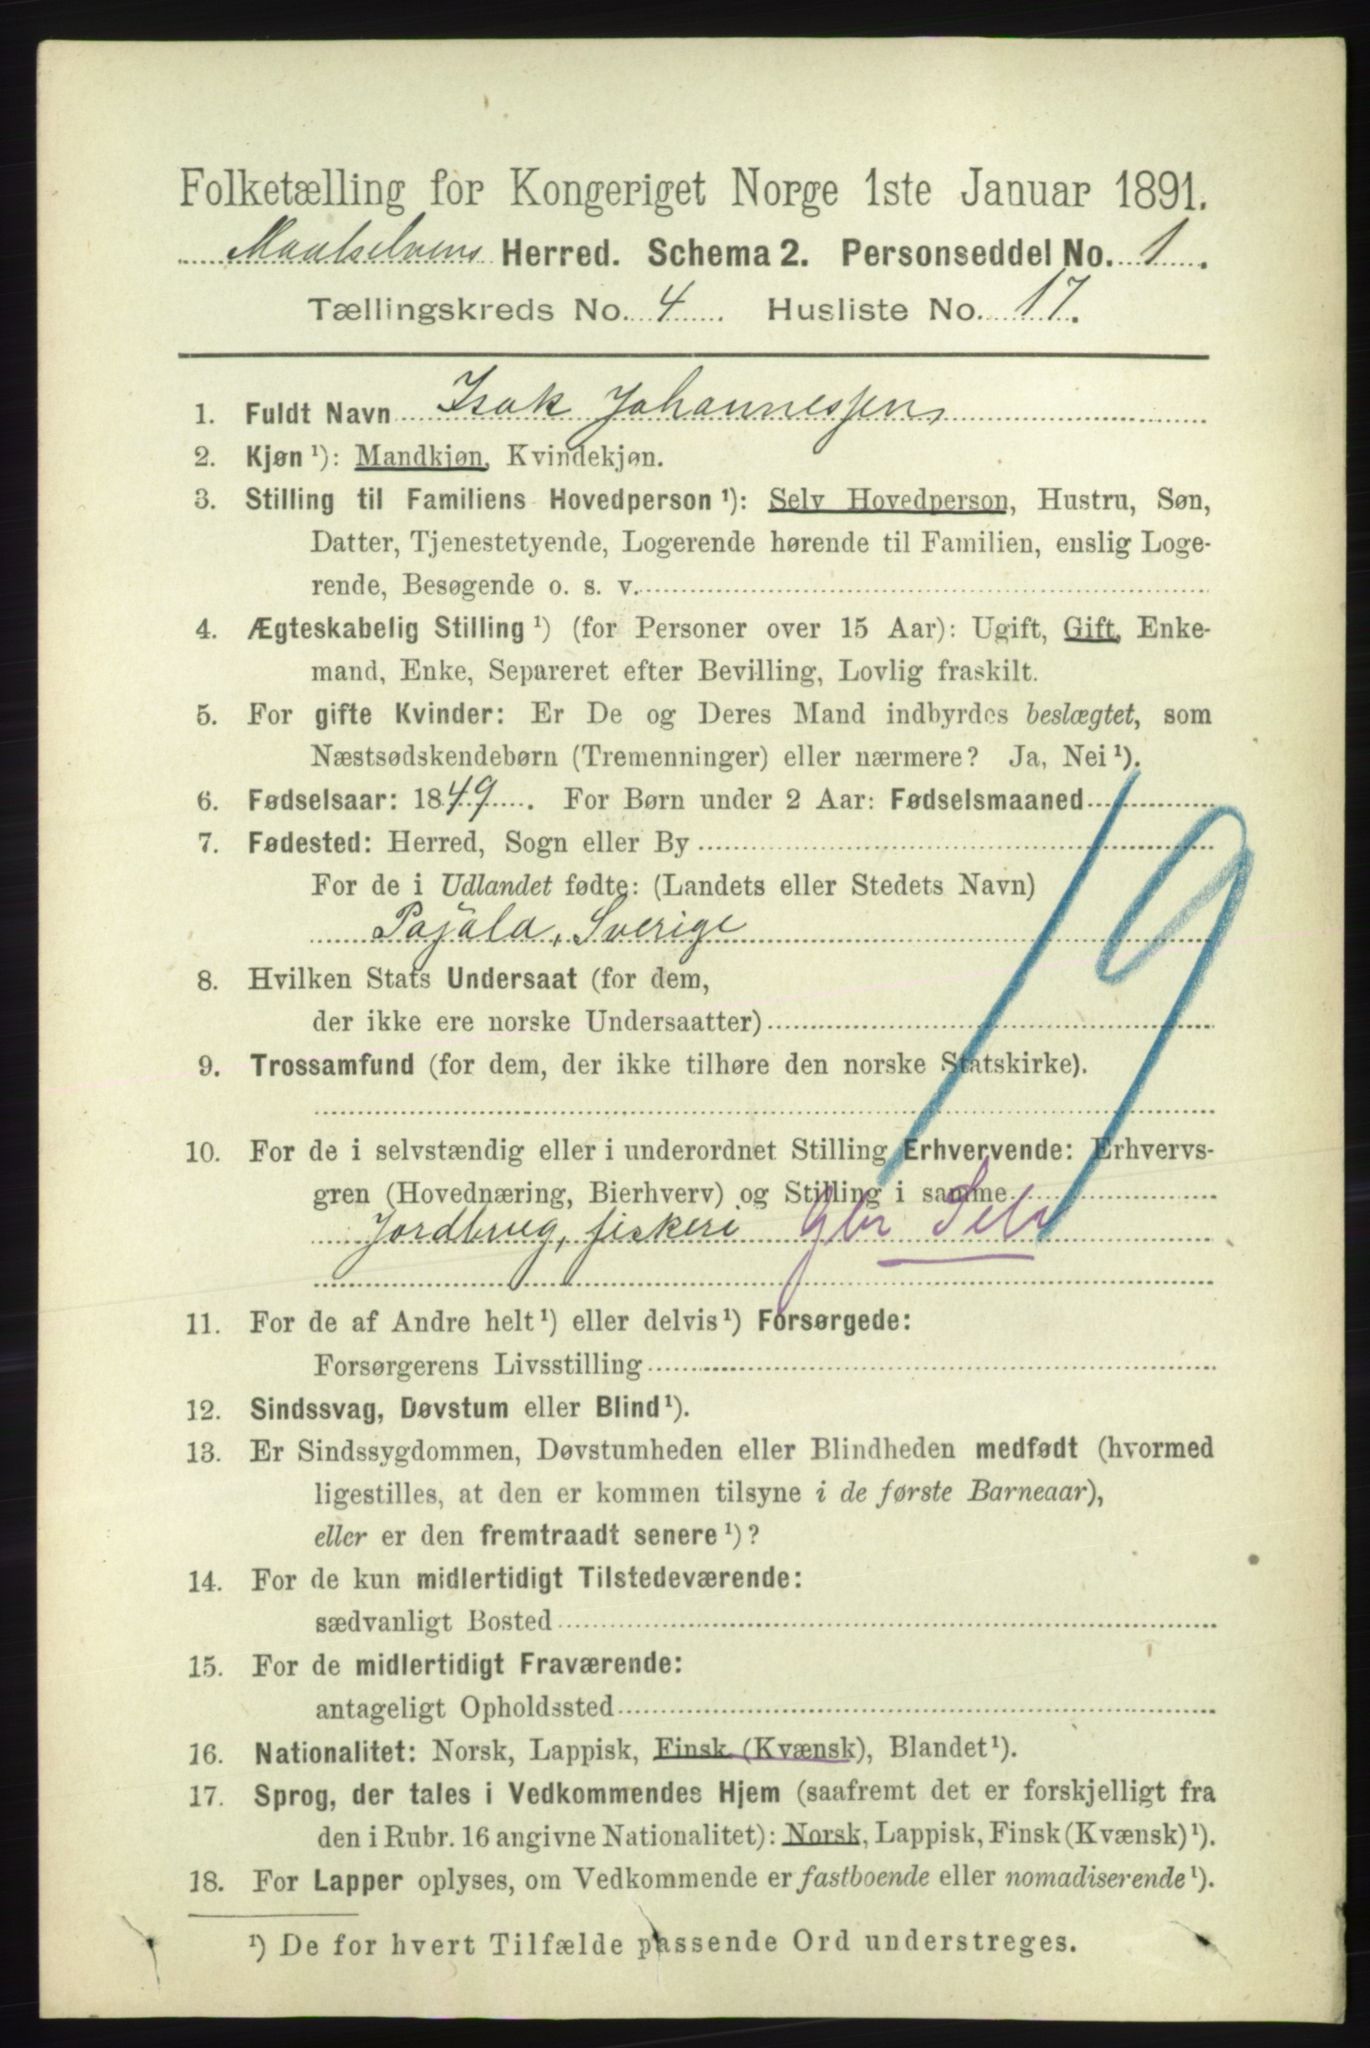 Folketælling for Kongeriget Norge 1ste Januar 1891.
Maalselvens Herred. Schema 2. Personseddel No. 1.
Tællingskreds No. 4 Husliste No. 17.
1. Fuldt Navn Isak Johannessen,
2. Kjøn ¹): Mandkjøn, Kvindekjøn.
3. Stilling til Familiens Hovedperson ¹): Selv Hovedperson, Hustru, Søn,
Datter, Tjenestetyende, Logerende hørende til Familien, enslig Loge-
rende, Besøgende o. s. v.
4. Ægteskabelig Stilling ¹) (for Personer over 15 Aar): Ugift, Gift, Enke-
mand, Enke, Separeret efter Bevilling, Lovlig fraskilt.
5. For gifte Kvinder: Er De og Deres Mand indbyrdes beslægtet, som
Næstsødskendebørn (Tremenninger) eller nærmere? Ja, Nei ¹).
6. Fødselsaar: 1849. For Børn under 2 Aar: Fødselsmaaned
7. Fødested: Herred, Sogn eller By
For de i Udlandet fødte: (Landets eller Stedets Navn)
Pajala, Sverige
19
8. Hvilken Stats Undersaat (for dem,
der ikke ere norske Undersaatter)
9. Trossamfund (for dem, der ikke tilhøre den norske Statskirke).
10. For de i selvstændig eller i underordnet Stilling Erhvervende: Erhvervs-
gren (Hovednæring, Bierhverv) og Stilling i samme
Jordbrug, fiskeri Gbr Selv
11. For de af Andre helt ¹) eller delvis ¹) Forsørgede:
Forsørgerens Livsstilling
12. Sindssvag, Døvstum eller Blind ¹).
13. Er Sindssygdommen, Døvstumheden eller Blindheden medfødt (hvormed
ligestilles, at den er kommen tilsyne i de første Barneaar),
eller er den fremtraadt senere ¹)?
14. For de kun midlertidigt Tilstedeværende:
sædvanligt Bosted
15. For de midlertidigt Fraværende:
antageligt Opholdssted
16. Nationalitet: Norsk, Lappisk, Finsk (Kvænsk), Blandet ¹).
17. Sprog, der tales i Vedkommendes Hjem (saafremt det er forskjelligt fra
den i Rubr. 16 angivne Nationalitet): Norsk, Lappisk, Finsk (Kvænsk) ¹).
18. For Lapper oplyses, om Vedkommende er fastboende eller nomadiserende ¹).
¹) De for hvert Tilfælde passende Ord understreges.